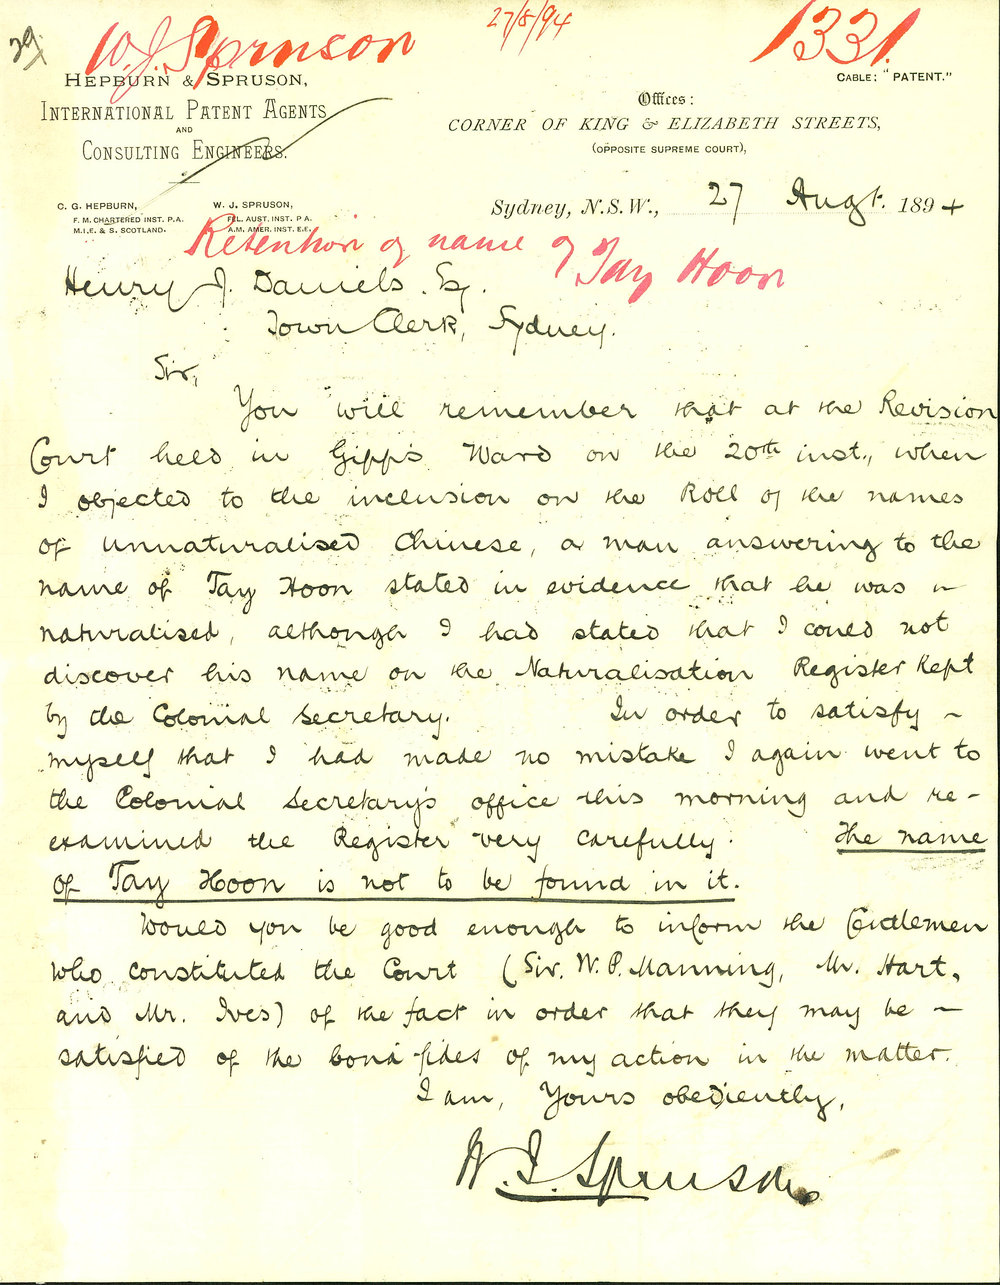 27/8/94
1331.
29
W. J. Spruson
HEPBURN & SPRUSON,
INTERNATIONAL PATENT AGENTS
AND
CONSULTING ENGINEERS.
CABLE: "PATENT."
Offices:
CORNER OF KING & ELIZABETH STREETS,
(OPPOSITE SUPREME COURT),
C. G. HEPBURN,
F. M. CHARTERED INST. P.A.
M.I.E. & S. SCOTLAND.
W. J. SPRUSON,
FEL. AUST. INST. P A.
A.M. AMER. INST. E.E.
Sydney, N.S.W., 27 Augt. 1894
Retention of name of Tay Hoon
Henry J. Daniels Esq.
Town Clerk, Sydney.
Sir,
You will remember that at the Revision
Court held in Gipps Ward on the 20th inst., when
I objected to the inclusion on the Roll of the names
of unnaturalised Chinese, a man answering to the
name of Tay Hoon stated in evidence that he was ~
naturalised, although I had stated that I could not
discover his name on the Naturalisation Register kept
by the Colonial Secretary. In order to satisfy ~
myself that I had made no mistake I again went to
the Colonial Secretary's office this morning and re-
examined the Register very carefully. The name
of Tay Hoon is not to be found in it.
Would you be good enough to inform the Gentlemen
who constituted the Court (Sir. W. P. Manning, Mr. Hart,
and Mr. Ives) of the fact in order that they may be ~
satisfied of the bona-fides of my action in the matter.
I am, Yours obediently,
W. J. Spruson